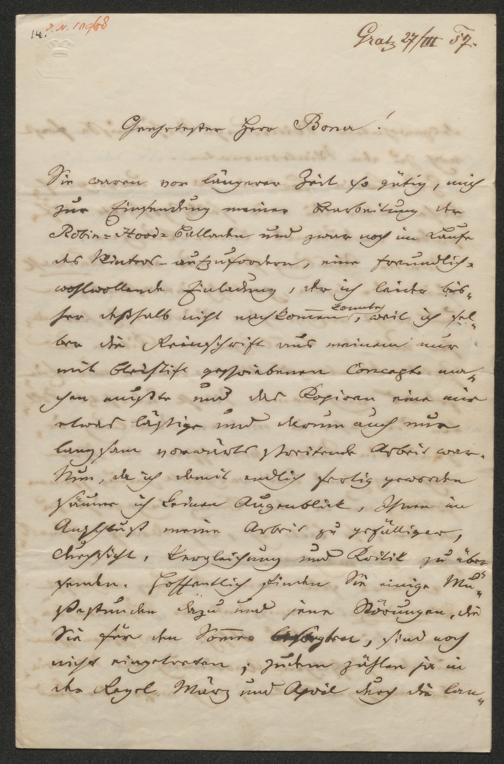 14. I. N. 11968
Gratz 27/III 57.
Geehrtester Herr Boner!
Sie waren vor längerer Zeit so gütig, mich
zur Einsendung meiner Bearbeitung der
Robin-Hood-Balladen und zwar noch im Laufe
des Winters aufzufordern, eine freundlich-
wohlwollende Einladung, der ich leider bis-
her deßhalb nicht nachkommen konnte, weil ich sel-
ber die Reinschrift aus meinem nur
mit Bleistift geschriebenen Concepte ma-
chen mußte und das Kopiren eine mir
etwas lästige und darum auch nur
langsam vorwärts schreitende Arbeit war.
Nun, da ich damit endlich fertig geworden
säume ich keinen Augenblick, Ihnen im
Anschluß meine Arbeit zu gefälliger
Durchsicht, Vergleichung und Kritik zu über-
senden. Hoffentlich finden Sie einige Mu-
ßestunden dazu und jene Störungen, die
Sie für den Sommer besorgten, sind noch
nicht eingetreten; zudem zählen ja in
der Regel März und April durch die lan-